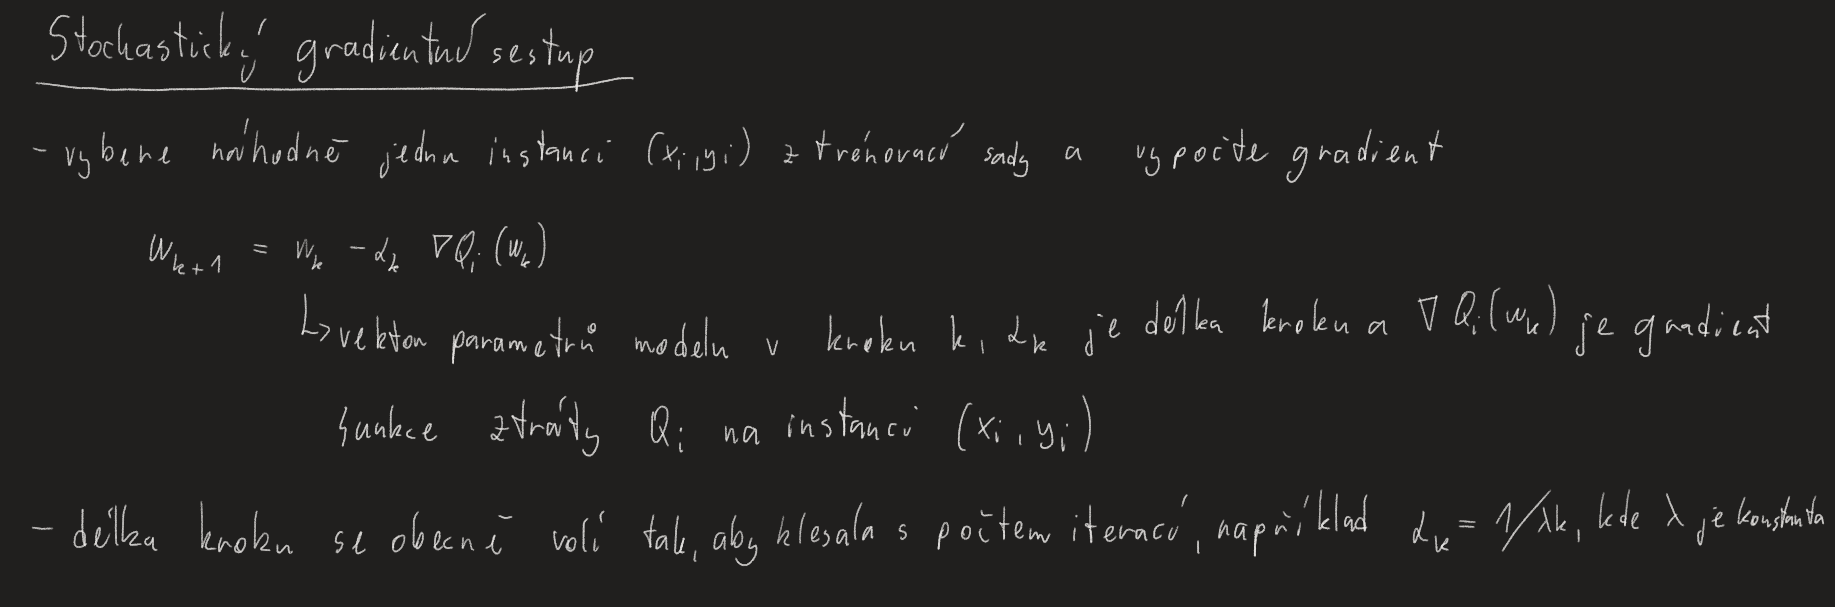 Stochastický gradientní sestup
- vybere náhodně jednu instanci (xᵢ, yᵢ) z trénovací sady a vypočte gradient
wₖ₊₁ = wₖ - αₖ ∇Qᵢ(wₖ)
↳ vektor parametrů modelu v kroku k, αₖ je délka kroku a ∇Qᵢ(wₖ) je gradient
funkce ztráty Qᵢ na instanci (xᵢ, yᵢ)
- délka kroku se obecně volí tak, aby klesala s počtem iterací, například αₖ = 1/λk, kde λ je konstanta